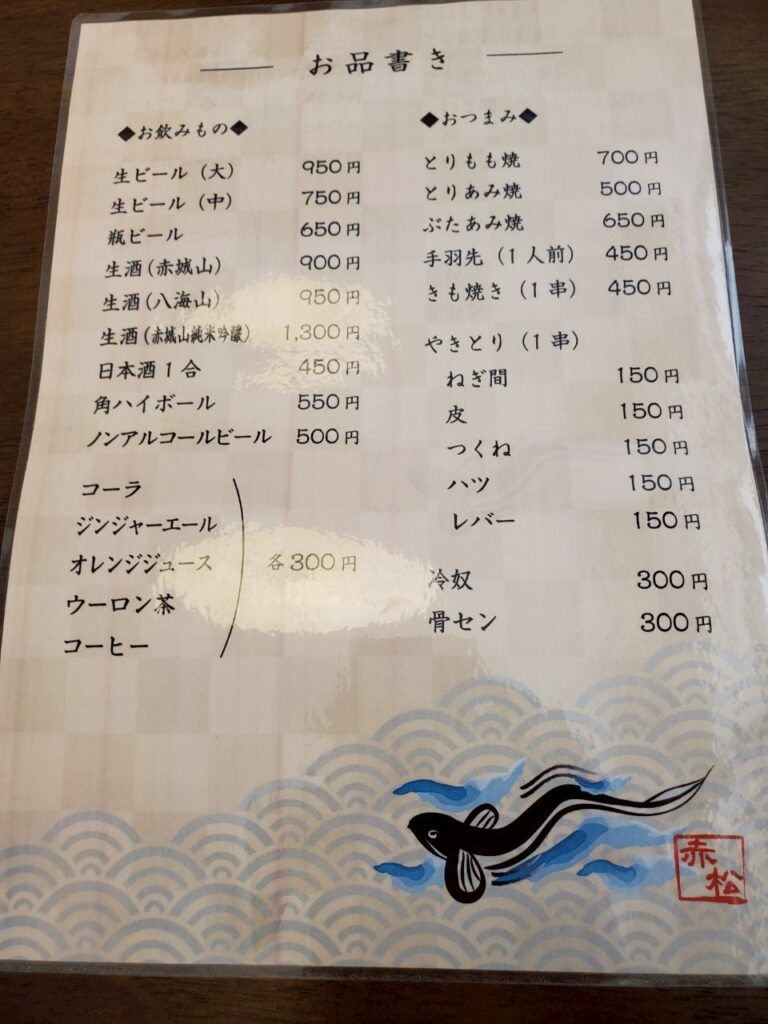 お品書き
◆お飲みもの◆
生ビール（大） 950円
生ビール（中） 750円
瓶ビール 650円
生酒(赤城山) 900円
生酒(八海山) 950円
生酒(赤城山純米吟醸) 1,300円
日本酒1合 450円
角ハイボール 550円
ノンアルコールビール 500円
コーラ
ジンジャーエール
オレンジジュース 各300円
ウーロン茶
コーヒー
◆おつまみ◆
とりもも焼 700円
とりあみ焼 500円
ぶたあみ焼 650円
手羽先（1人前） 450円
きも焼き（1串） 450円
やきとり（1串）
ねぎ間 150円
皮 150円
つくね 150円
ハツ 150円
レバー 150円
冷奴 300円
骨セン 300円
赤松